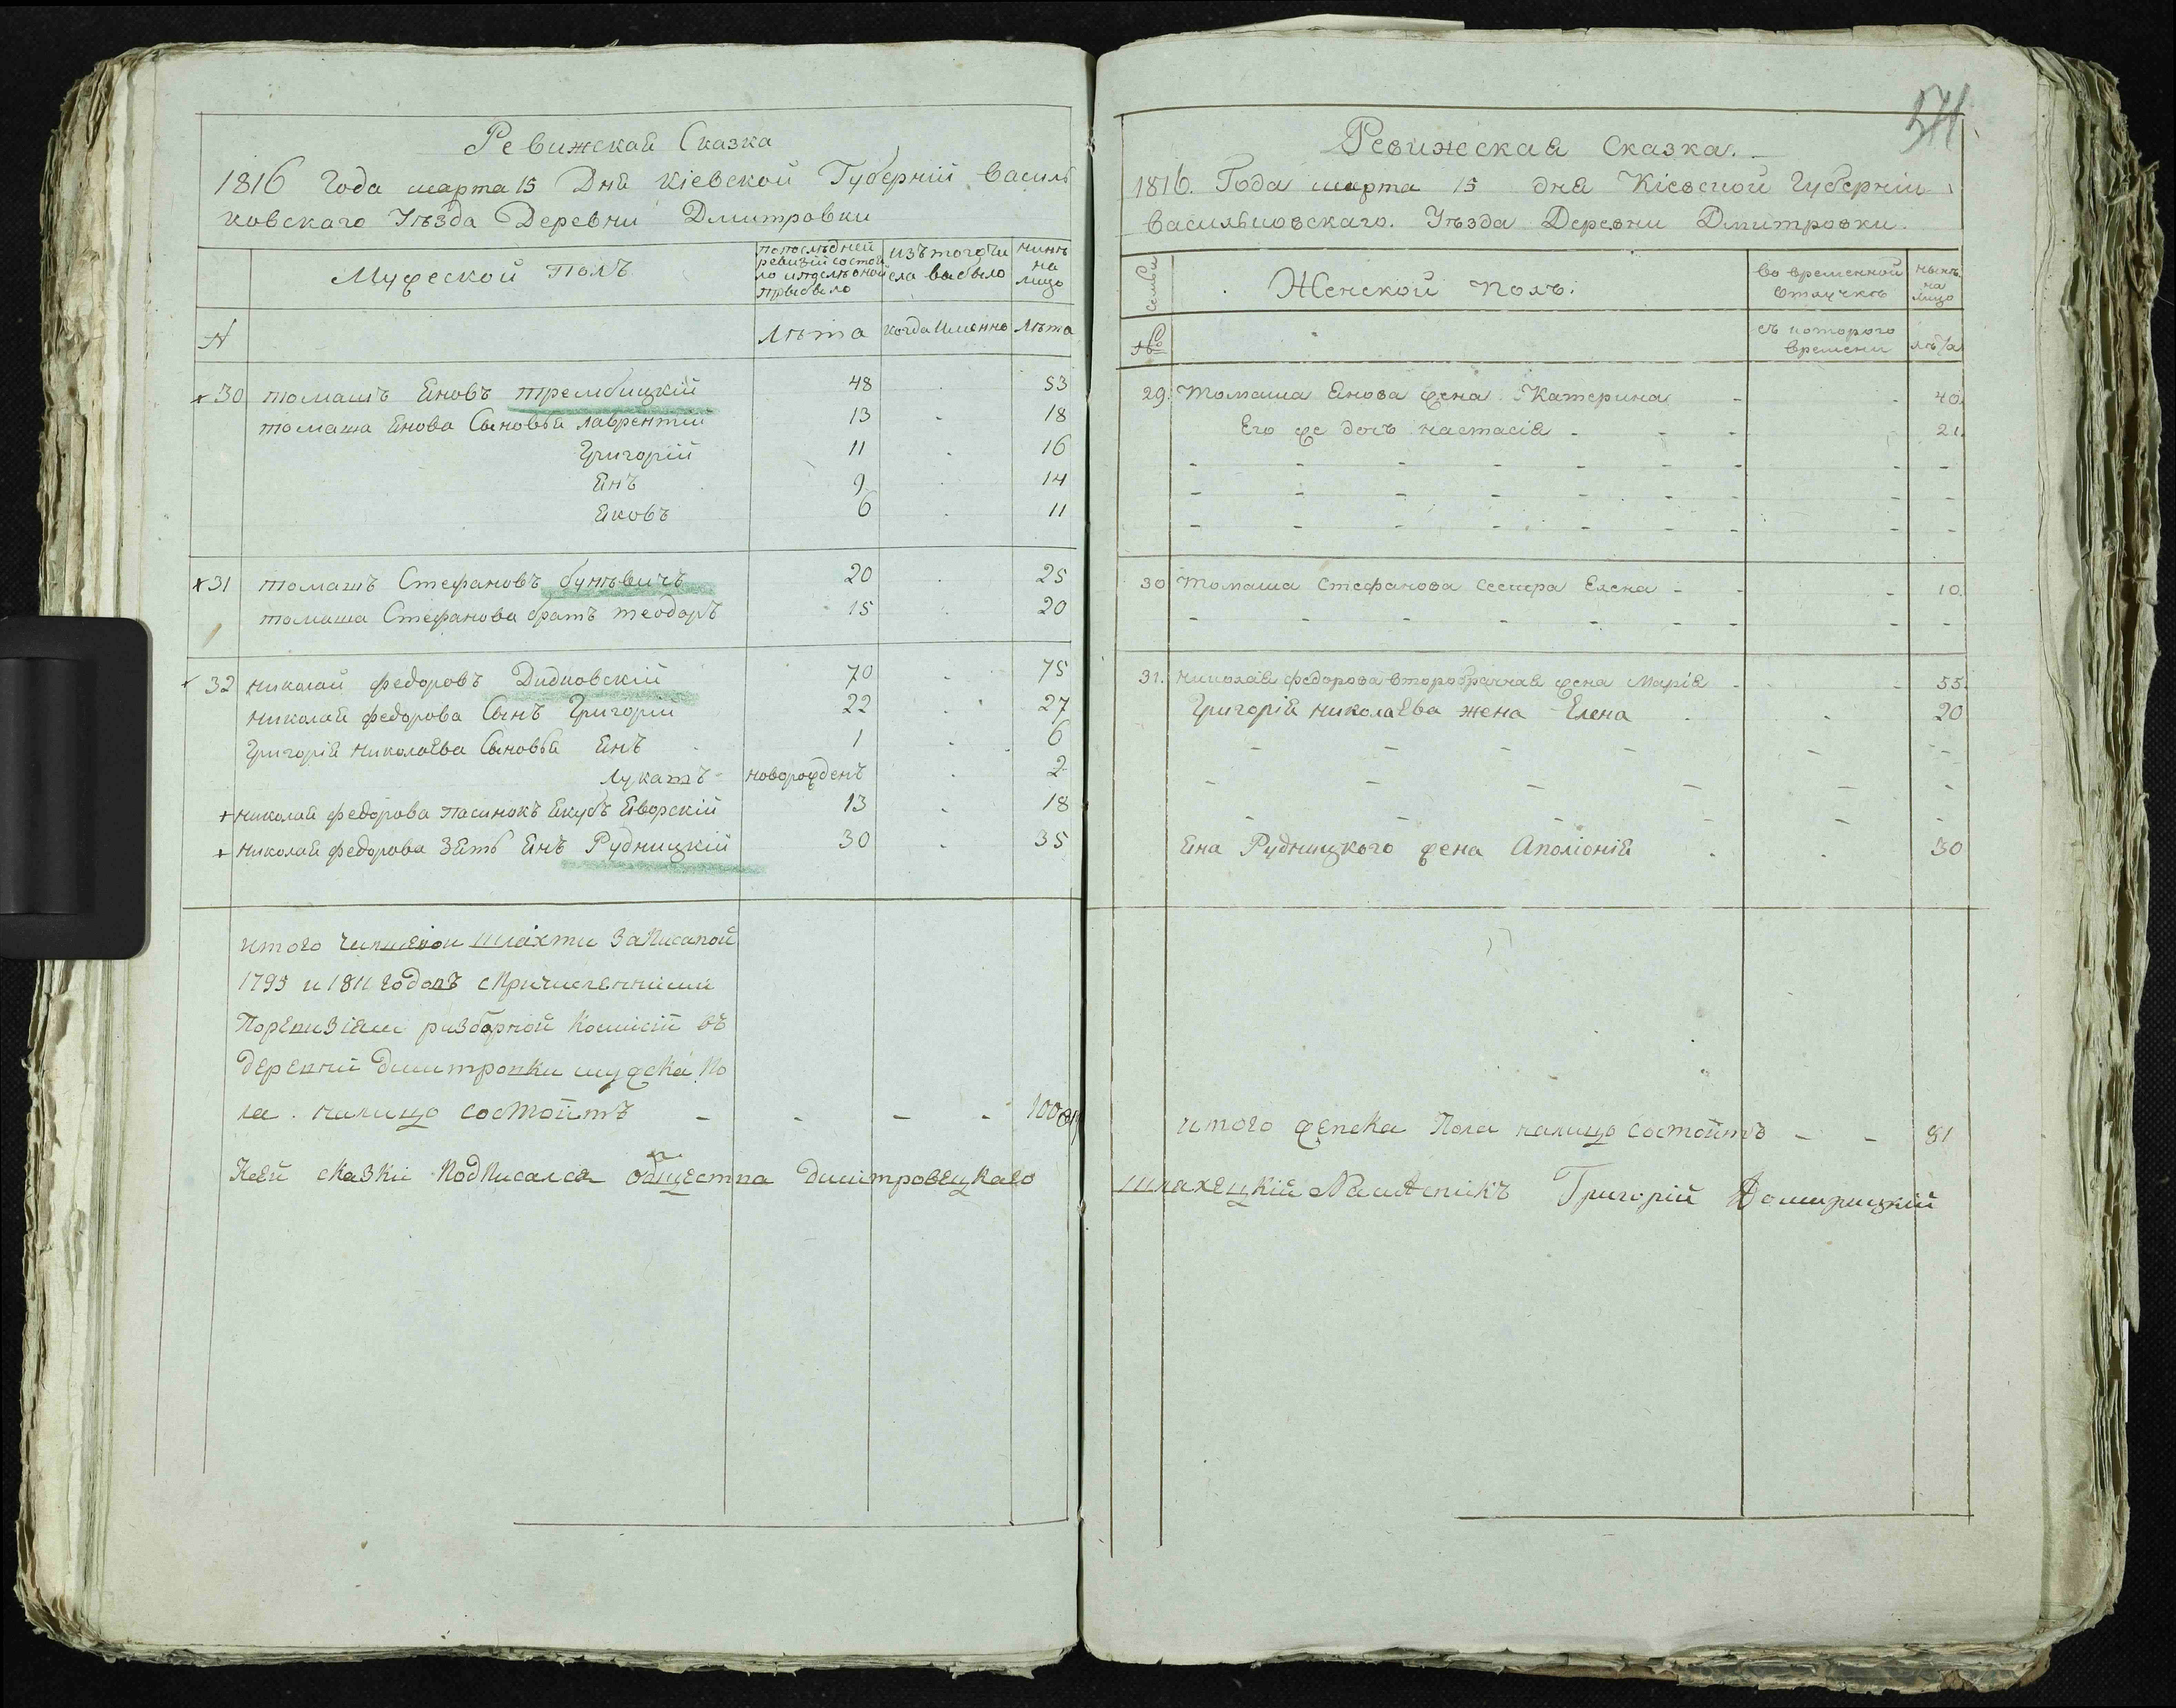 Ревижская Сказка
1816 Года марта 15 Дня Кіевской Губерніи Василь
ковскаго Уѣзда Деревни Дмитровки
Мужеской полъ
попослѣдней
ревизіи состоя
ло и послѣ оной
прибыло
изъ того чи
сла выбыло
нинѣ
на
лицо
Лѣта
когда имянно
Лѣта
30 томашъ Яновъ трембицкій 48 53
томаша Янова Сыновья лаврентій 13 18
Григорій 11 16
Янъ 9 14
Яковъ 6 11
31 томашъ Стефановъ бунѣвичъ 20 25
томаша Стефанова братъ теодоръ 15 20
32 николай федоровъ Дидковскій 70 75
николая федорова Сынъ Григорій 22 27
Григорія николаева Сыновья Янъ 1 6
Лукашъ новорожденъ 2
+ николая федорова пасинокъ Якубъ Яворскій 13 18
+ николая федорова Зять Янъ Рудницкій 30 35
итого чиншевои шляхти Записаной
1795 и 1811 годовъ спричисленними
Поревизіям разборной Комисіи въ
деревни дмитровки мужска По
ла налицо состоитъ 100
Ксей сказки Подписался общества дмитровецкаго
571
Ревижская Сказка.
1816. Года марта 15 дня Кіевской Губерніи
васильковскаго. Уѣзда Деревни Дмитровки.
семьи
Женской полъ:
Во временной
отлучкѣ
нынѣ
на
лицо
съ которого
времени
лѣта
29. Томаша Янова жена Катерина 40.
Его же дочь настасія 21.
30 Томаша Стефанова сестра Елена 10.
31. николая федорова второбрачная жена Марія 55.
Григорія николаева жена Елена 20
Яна Рудницкого жена Аполіонія 30
итого женска Пола налицо состоитъ 81
шляхецкій Намѣсникъ Григорій Домирицкій